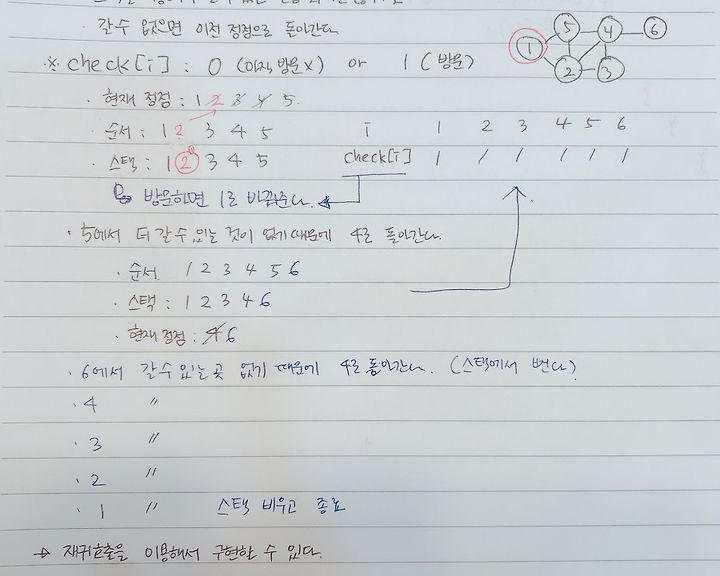 · 갈 수 없으면 이전 정점으로 돌아간다.
5 4 6
1
2 3
※ check[i] : 0 (아직 방문 x) or 1 ( 방문)
· 현재 정점 : 1 2 3 4 5.
· 순서 : 1 2 3 4 5
i 1 2 3 4 5 6
· 스택 : 1 2 3 4 5
check[i] 1 1 1 1 1 1
방문하면 1로 바꿔준다.
· 5에서 더 갈 수 있는 것이 없기 때문에 4로 돌아간다.
· 순서 1 2 3 4 5 6
· 스택 : 1 2 3 4 6
· 현재 정점 : 4 6
· 6에서 갈 수 있는 곳 없기 때문에 4로 돌아간다. (스택에서 뺀다)
· 4 〃
· 3 〃
· 2 〃
· 1 〃 스택 비우고 종료
→ 재귀호출을 이용해서 구현할 수 있다.